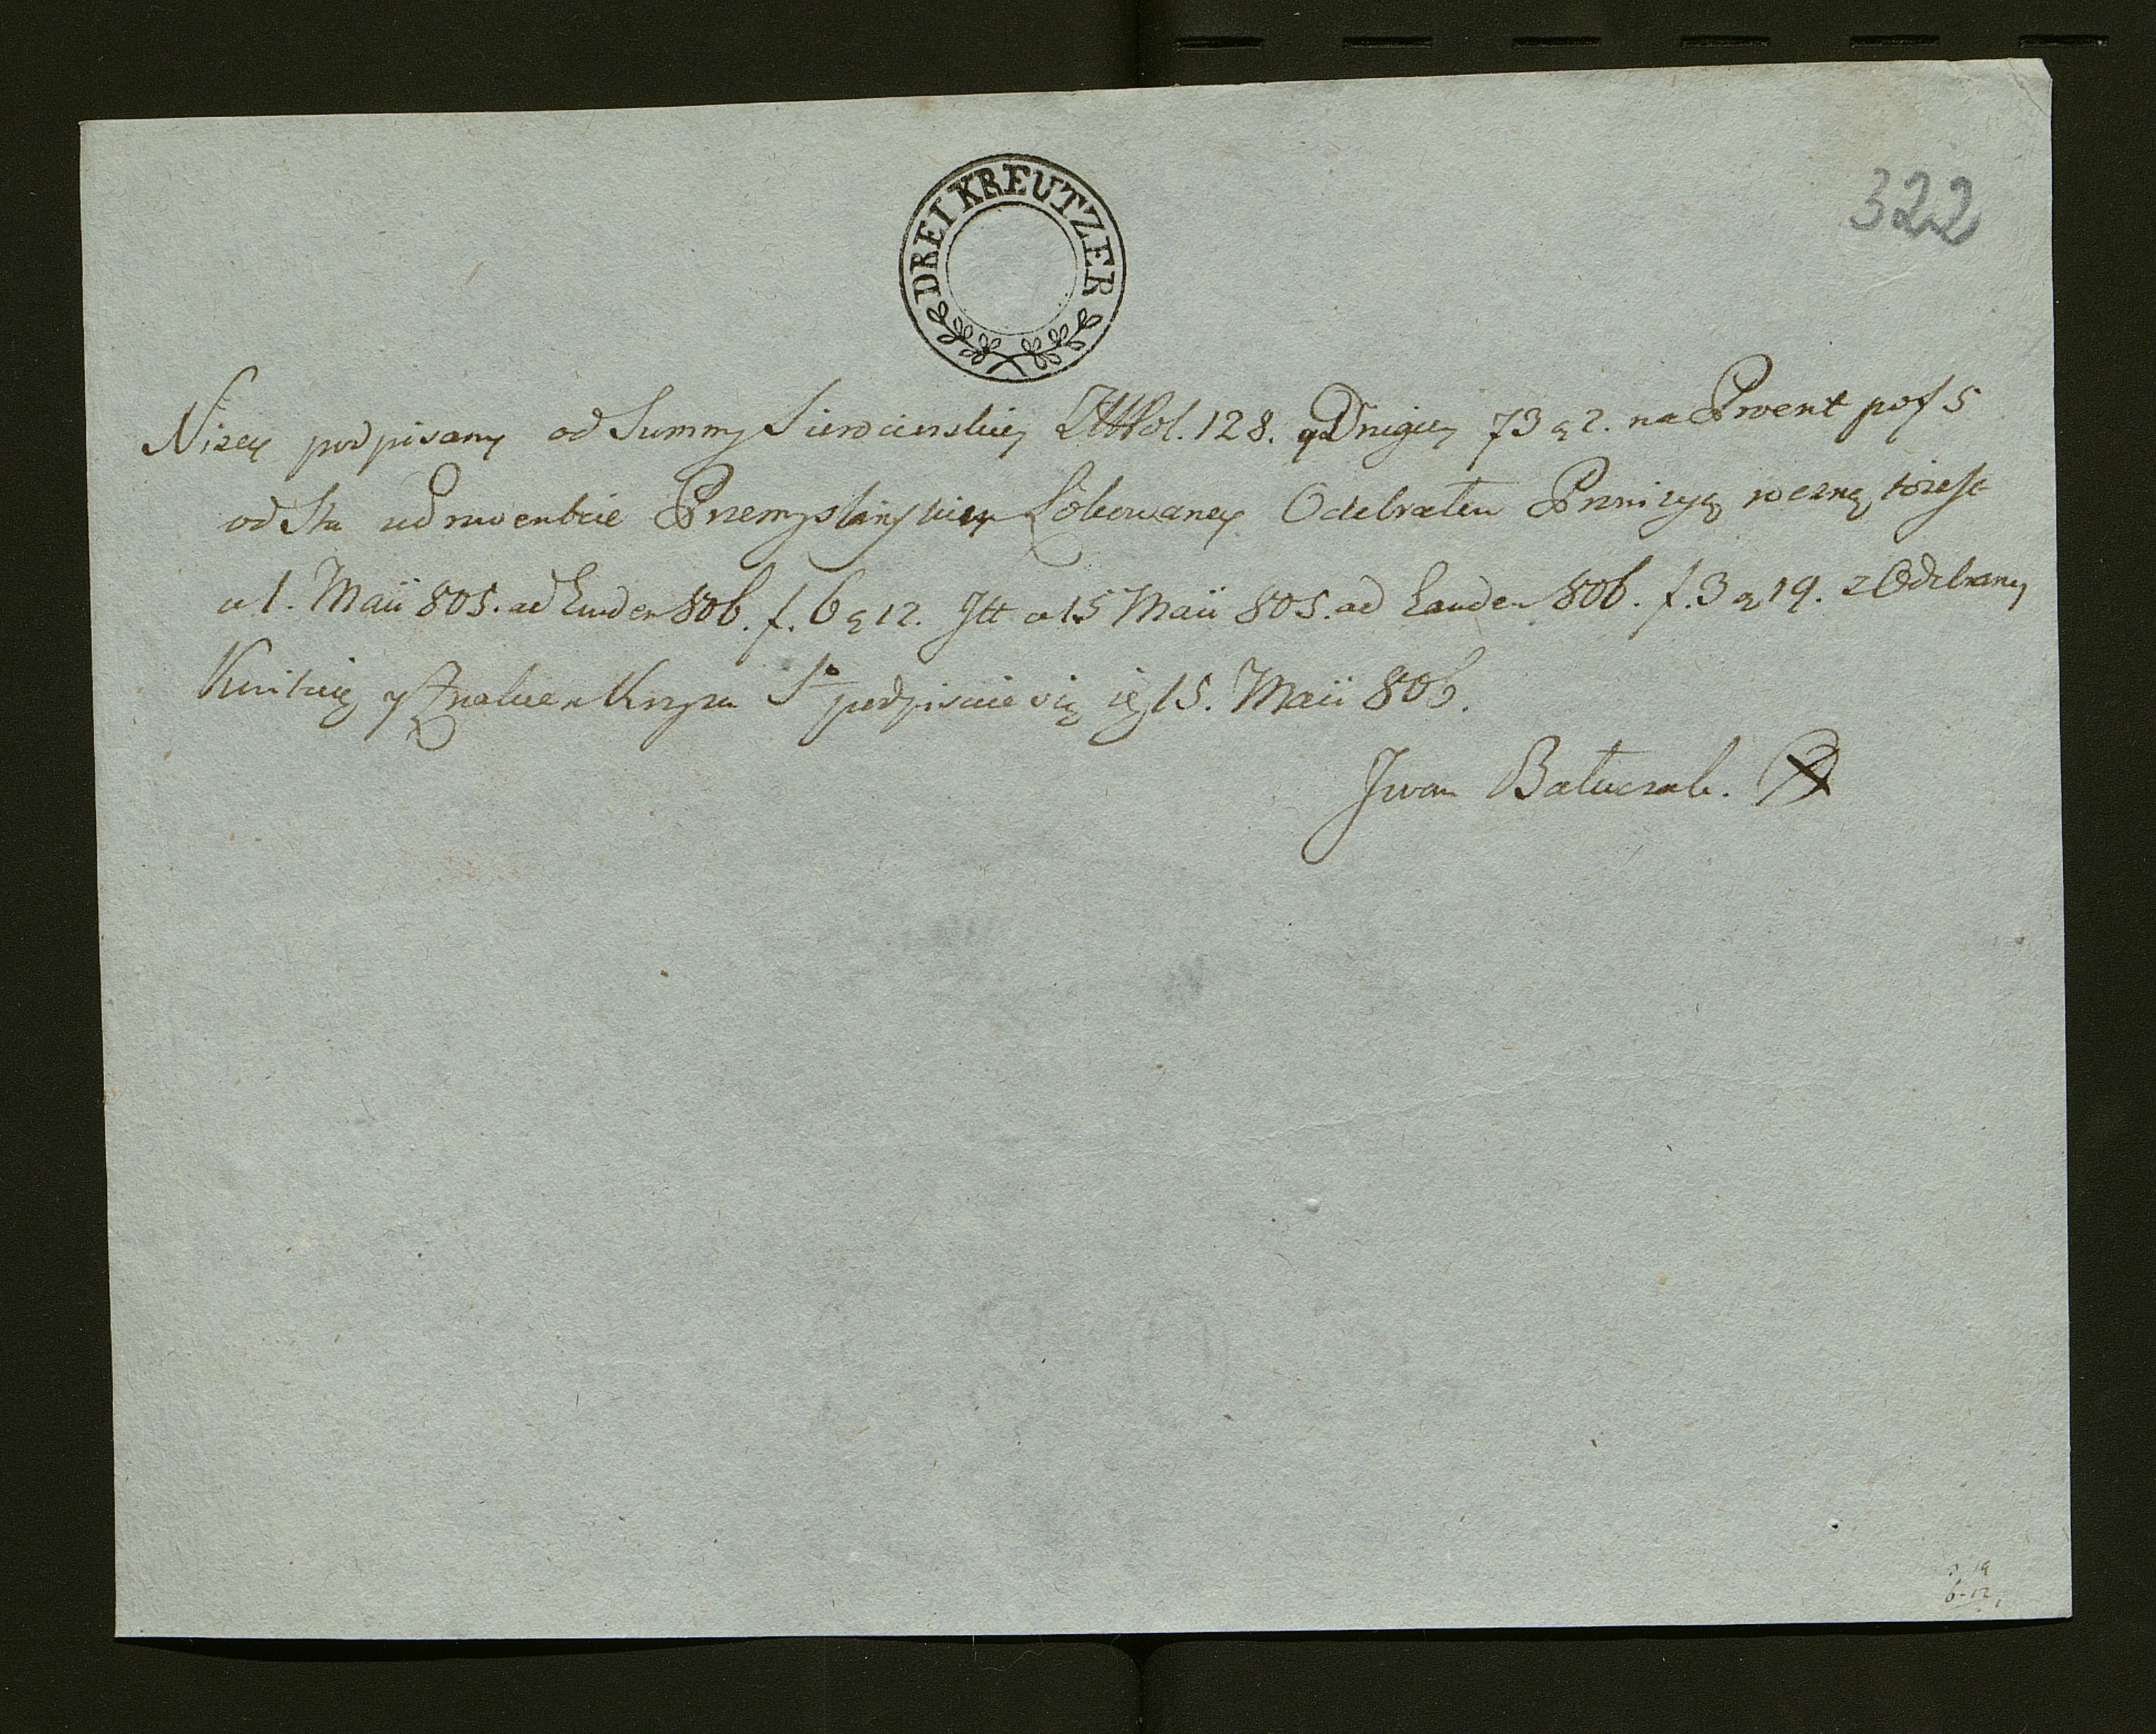 DREI KREUTZER
322
Nizey podpisany od Summy Sierocinskiey 128. y Drugiey 73 x 2. na Prowent po f 5
od Sta w Przemyslinskiey Lokowaney Odebrałem Prowizyą roczną to jest
a 1. Maii 805. ad Eunden 806. f. 6 x 12. Itt a 15 Maii 805. ad Eanden 806. f. 3 x 19. z Odebraney
Kwituię y Znakiem Krzyża S° podpisuie się 15. Maii 806.
Iwan Batuczak. X
3 19
6-12